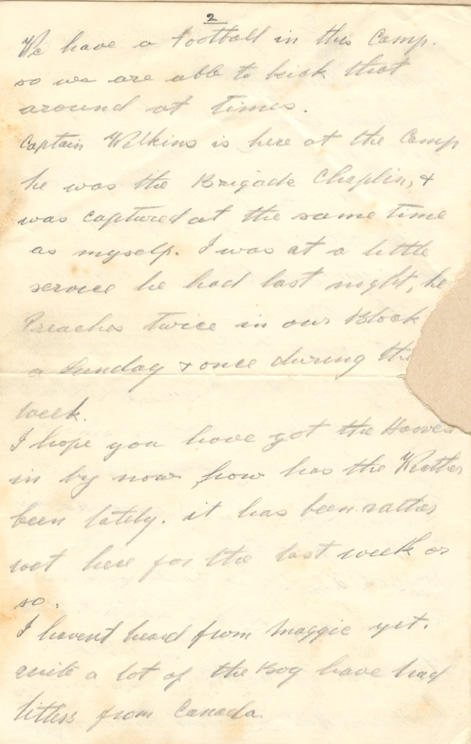 2
We have a football in this Camp.
so we are able to kick that
around at times.
Captain Wilkins is here at the Camp
he was the Brigade Chaplin, +
was captured at the same time
as myself. I was at a little
service he had last night, he
Preaches twice in our Block
a Sunday + once during the
week.
I hope you have got the
in by now how has the Wether
been lately. it has been rather
wet here for the last week or
so.
I havent heard from Maggie yet.
quite a lot of the Boy have had
letters from Canada.